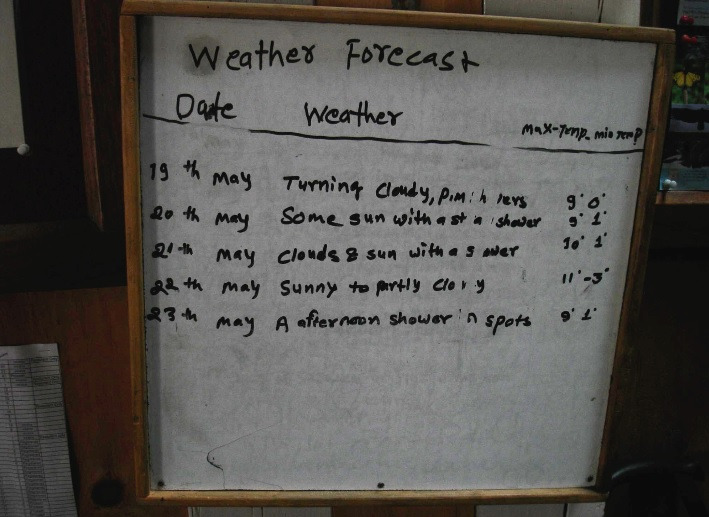 Weather Forecast
Date Weather Max-Temp. min Temp
19 th may Turning Cloudy, P.M. 9° 0°
20 th may Some sun with a shower 9° 1°
21 th may Clouds & sun with a 10° 1°
22 th may Sunny to partly 11° -3°
23 th may A afternoon shower in spots 9° 1°